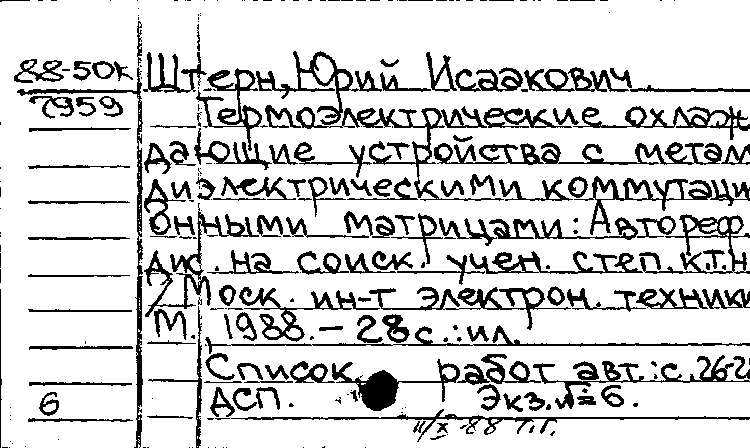 88-50к Штерн, Юрий Исаакович.
7959 Термоэлектрические охлаж
дающие устройства с метал
диэлектрическими коммутаци
онными матрицами: Автореф.
дис. на соиск. учен. степ. к.т.н
/ Моск. ин-т электрон. техники
М., 1988. – 28 с.: ил.
Список работ авт.: с. 26-28
6 ДСП. Экз. № 6.